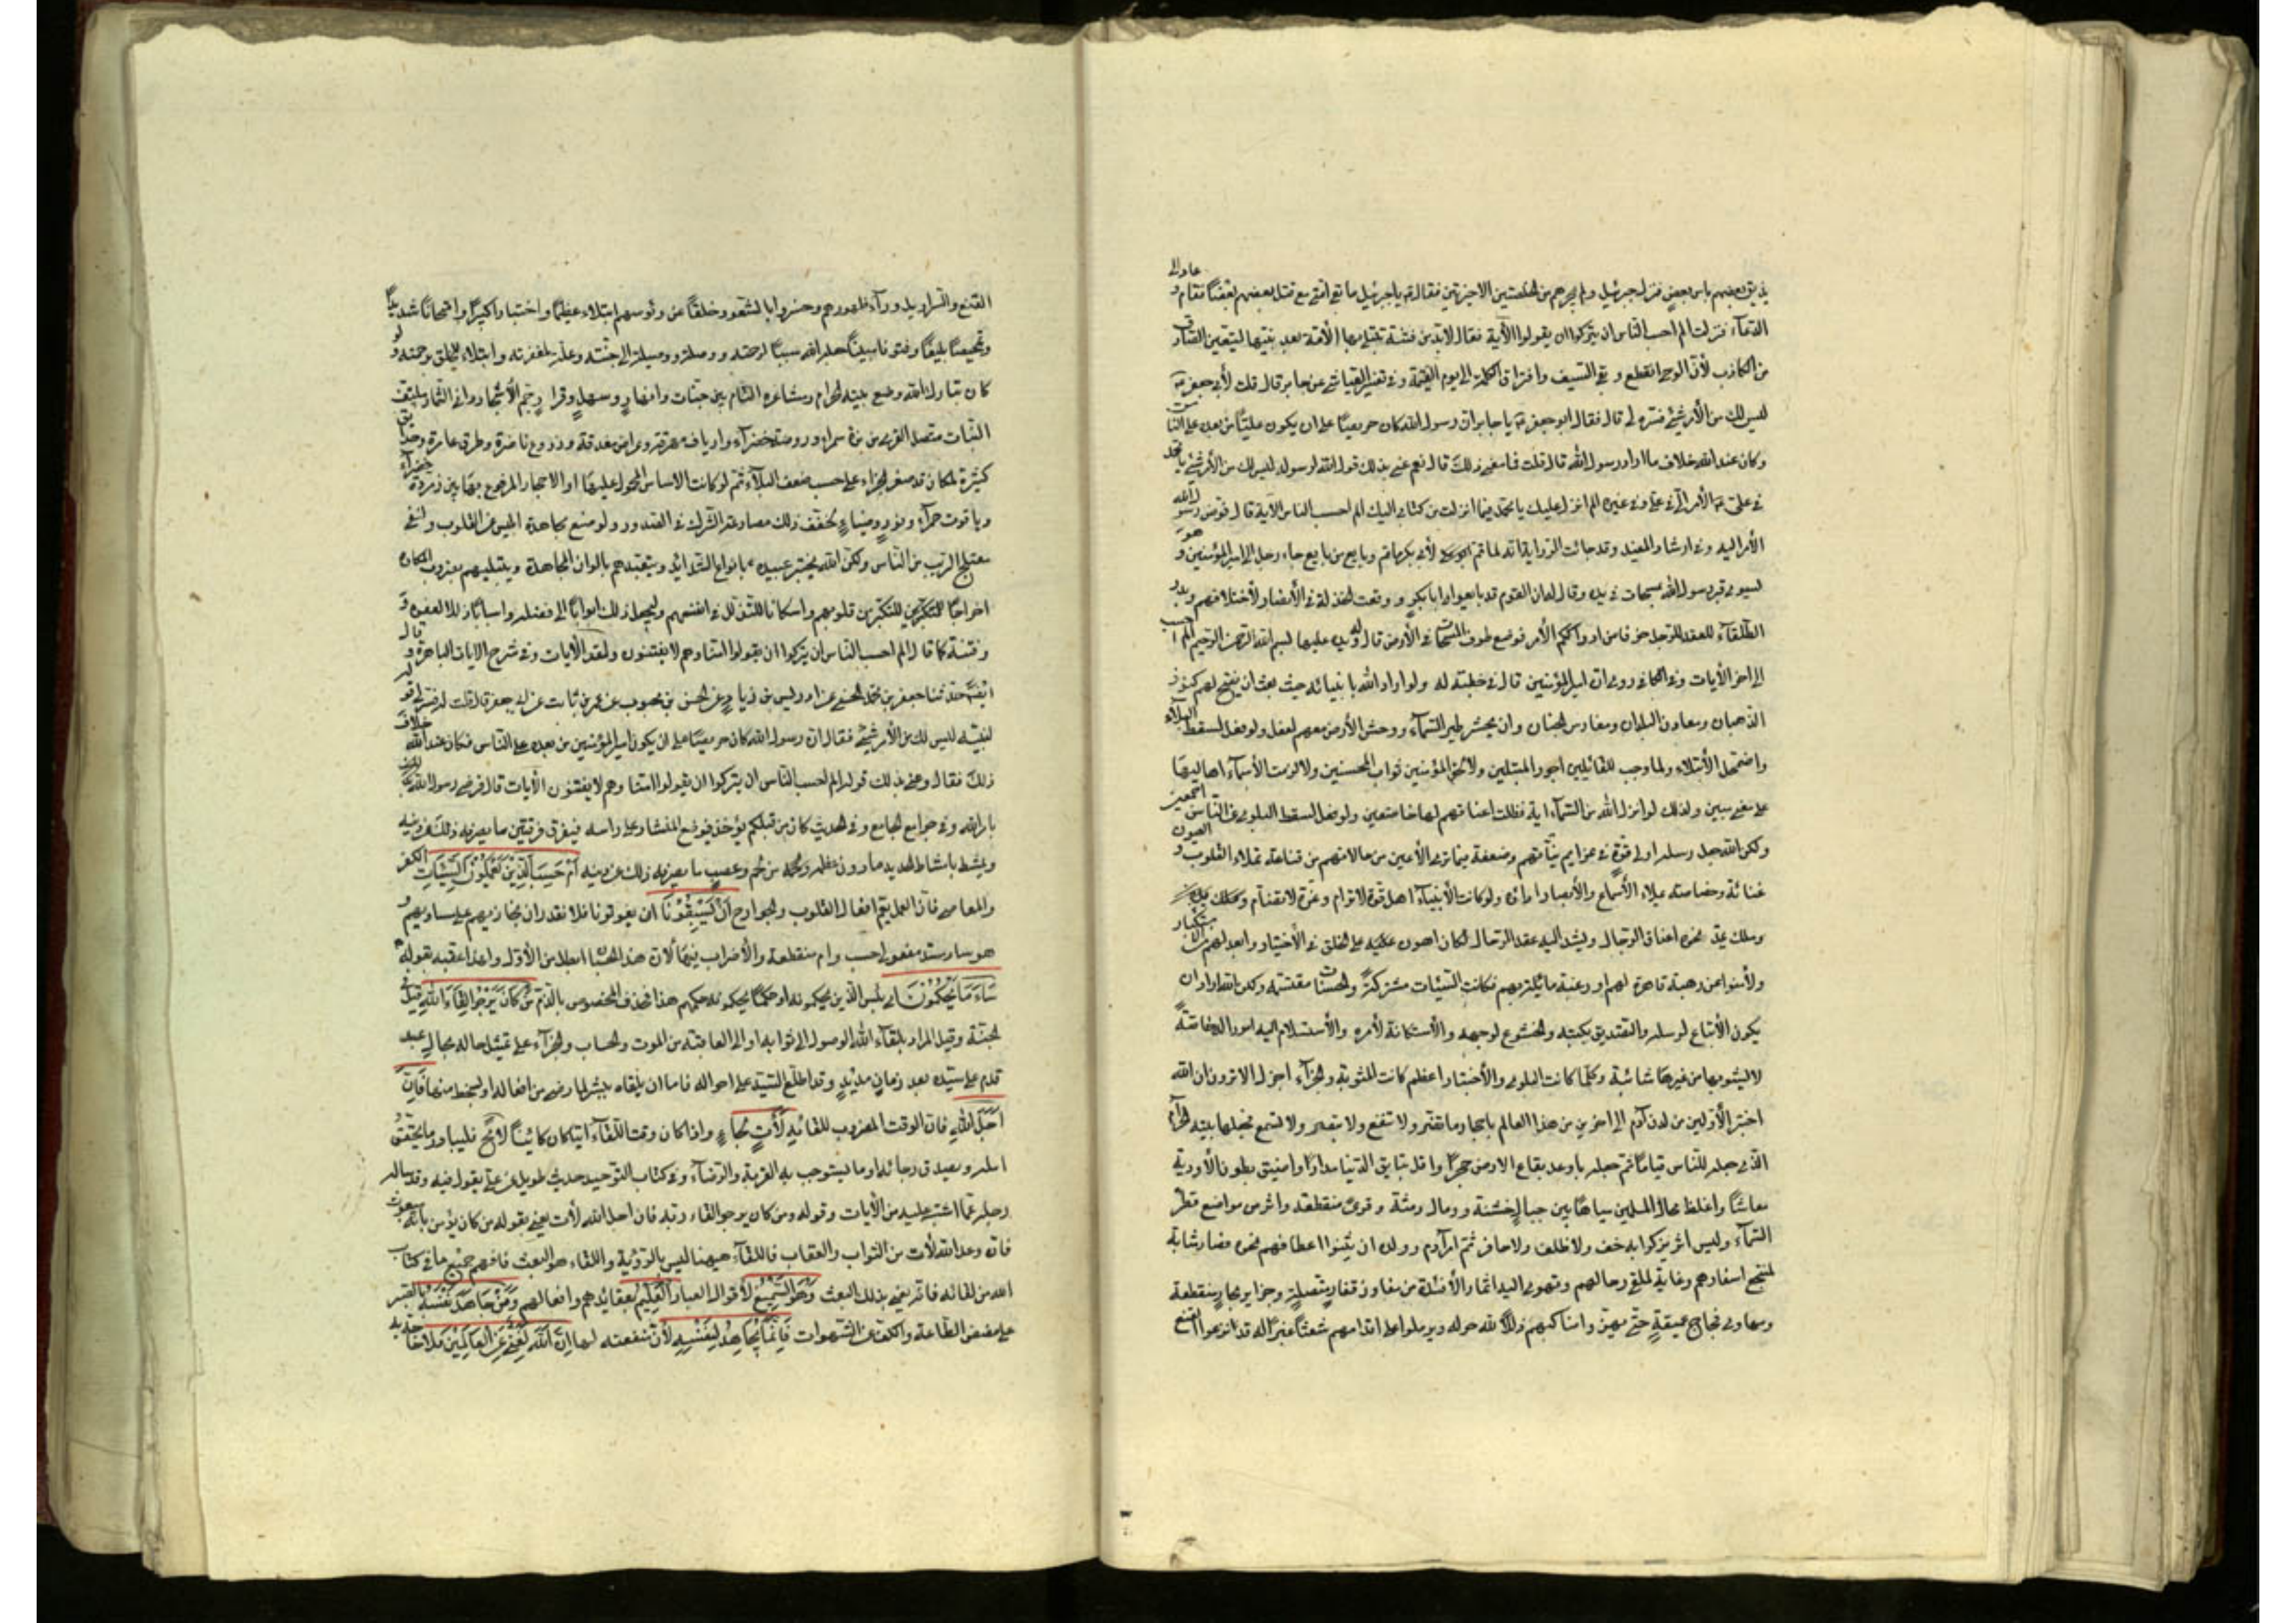 يذيق بعضهم بأس بعض فنزل جبرئيل ولم يجرهم من الخصلتين الاخيرتين فقال ص يا جبرئيل ما بقى أمتى مع قتل بعضهم بعضًا فقام و عاد الى
الدعآء فنزلت الم احسب الناس ان يتركوا ان يقولوا الآية فقال لابد من فتنة تبتلى بها الأمة بعد نبيها ليتعين الصادق
من الكاذب لأن الوحى انقطع وبقى السيف وافتراق الكلمة الى يوم القيمة وفى تفسير العياشى عن جابر قال قلت لأبى جعفر ع
ليس لك من الأمر شئ فسره لى قال فقال ابو جعفر ع يا جابر ان رسول الله كان حريصًا على ان يكون علىّ من بعده على الناس
وكان عند الله خلاف ما اراد رسول الله قال قلت فما معنى ذلك قال نعم عنى بذلك قول الله لرسوله ليس لك من الأمر شئ يا محمد
فى على ع الأمر الى فى على وفى غيره الم انزل عليك يا محمد فيما انزلت من كتابى اليك الم احسب الناس الآية قال فوض رسول الله
الأمر اليه وفى ارشاد المفيد وقد جائت الرواية انه لما تم لأبى بكر ما تم وبايع من بايع جاء رجل الى امير المؤمنين و هو
يسوى قبر رسول الله بمسحات فى يده وقال له ان القوم قد بايعوا ابا بكر ووقعت الخذلة فى الأنصار لأختلافهم وبدر
الطلقآء للعقد للرجل خوفا من ادراككم الأمر فوضع طرف المسحات فى الأرض ويده عليها ثم قال بسم الله الرحمن الرحيم الم احسب
الى اخر الآيات وفى الكافى روى ان امير المؤمنين قال فى خطبته له ولو اراد الله بانبيائه حيث بعث ان يفتح لهم كنوز
الذهبان ومعادن البلدان ومغارس الجنان وان يحشر طير السمآء ووحش الأرض معهم لفعل ولو فعل لسقط البلآء
واضمحل الأبتلاء ولما وجب للقائلين اجور المبتلين ولا لحق المؤمنين ثواب المحسنين ولا لزمت الأسمآء اهاليها
على معنى مبين ولذلك لو انزل الله من السمآء اية فظلت اعناقهم لها خاضعين ولو فعل لسقط البلوى عن الناس اجمعين
ولكن الله جعل رسله اولى قوة فى عزايم نياتهم وضعفة فيما ترى الأعين من حالاتهم من قناعة تملاء القلوب و العيون
غنائه وخصاصة يملاء الأسماع والأبصار اذائه ولو كانت الأنبيآء اهل قوة لاترام وعزة لا تضام وملك
يمد نحوه اعناق الرجال ويشد اليه عقد الرحال لكان اهون عليه على الخلق فى الأختبار وابعد لهم من الاستكبار
ولأمنوا عن رهبة قاهرة لهم او رغبة مائلة بهم فكانت السيئات مشتركة والحسنات مقتسمة ولكن الله اراد ان
يكون الأتباع لرسله والتصديق بكتبه والخشوع لوجهه والأستكانة لأمره والأستسلام اليه امورا له خاصة
لا يشوبها من غيرها شائبة وكلما كانت البلوى والأختبار اعظم كانت المثوبة والجزآء اجزل الا ترون ان الله
اختبر الأولين من لدن آدم الى اخرين من هذا العالم باحجار ما تضر ولا تنفع ولا تبصر ولا تسمع فجعلها بيته الحرام
الذى جعله للناس قيامًا ثم جعله باوعر بقاع الارض حجرًا واقل نتايق الدنيا مدارًا واضيق بطون الأودية
معاشًا واغلظ محال المسلمين مياهًا بين جبال خشنة ورمال دمثة وقرى منقطعة واثر من مواضع قطر
السمآء وليس اثر يزكوا به خف ولا ظلف ولا حافر ثم امر آدم وولده ان يثنوا اعطافهم نحوه فصار مثابة
لمنتجع اسفارهم وغاية لملقى رحالهم وتهوى اليه اثمار الأفئدة من مفاوز قفار متصلة وجزاير بحار منقطعة
ومهاوى فجاج عميقة حتى يهزوا مناكبهم ذللا لله حوله ويرملوا على اقدامهم شعثًا غبرًا له قد نبذوا القنع
القنع والسرابيل ورآء ظهورهم وحسروا بالشعور حلقًا عن رؤسهم ابتلاء عظيمًا واختبارا كبيرًا وامتحانًا شديدًا
وتمحيصًا بليغًا وقنوتا مبينًا جعله الله سببًا لرحمته ووصلة ووسيلة الى جنته وعلة لمغفرته وابتلاء للخلق برحمته ولو
كان تبارك الله وضع بيته الحرام ومشاعره العظام بين جنات وانهار وسهل وقرار جم الأشجار دانى الثمار ملتف
النبات متصل القرى من برة سمراء وروضة خضرآء وارياف محدقة وعراص مغدقة وزروع ناضرة وطرق عامرة وحدائق
كثيرة لكان قد صغر الجزاء على حسب ضعف البلآء ثم لو كانت الاساس المحمول عليها او الاحجار المرفوع بها بين زمردة خضرآء
وياقوت حمرآء ونور وضياء لخفف ذلك مصارعة الشك فى الصدور ولوضع مجاهدة ابليس عن القلوب ولنفى
معتلج الريب من الناس ولكن الله يختبر عبيده بانواع الشدائد ويتعبدهم بالوان المجاهدة ويبتليهم بضروب المكاره
اخراجًا للتكبر من قلوبهم واسكانا للتذلل فى انفسهم وليجعل ذلك ابوابًا الى فضله واسبابًا ذللا لعفوه و
وفتنة كما قال الم احسب الناس ان يتركوا ان يقولوا امنا وهم لا يفتنون ولقد الآيات وفى شرح الايات الباهرة و قال
ايضًا حدثنا جعفر بن محمد الحسنى عن ادريس بن زياد عن الحسن بن محبوب عن عمرو بن ثابت عن ابى جعفر قال قلت له فسر لى قوله
لنبيه ليس لك من الأمر شئ فقال ان رسول الله كان حريصًا على ان يكون امير المؤمنين من بعده على الناس فكان عند الله خلاف
ذلك فقال وعنى بذلك قوله الم احسب الناس ان يتركوا ان يقولوا امنا وهم لا يفتنون الآيات قال فرضى رسول الله
بامر الله وفى جوامع الجامع وفى الحديث كان من قبلكم يؤخذ فيوضع المنشار على راسه فيفرق فرقتين ما يصرفه ذلك عن دينه
ويمشط بامشاط الحديد ما دون عظمه ولحمه من لحم وعصب ما يصرفه ذلك عن دينه أَمْ حَسِبَ الَّذِيْنَ يَعْمَلُوْنَ السَّيِّئَاتِ الكفر
والمعاصى فان العمل يعم افعال القلوب والجوارح أَنْ يَسْبِقُوْنَا ان يفوتونا فلا نقدر ان نجازيهم على مساويهم و
هو ساد مسد مفعولى حسب وام منقطعة والأضراب فيها لأن هذا الحسبان ابطل من الأول ولهذا عقبه بقوله
سَاءَ مَا يَحْكُمُوْنَ اى بئس الذين يحكمونه او حكمًا يحكمونه حكمهم هذا فحذف المخصوص بالذم مَنْ كَانَ يَرْجُوْا لِقَاءَ اللَّهِ قيل فى
الجنة وقيل المراد بلقاء الله الوصول الى ثوابه او الى العاقبة من الموت والحساب والجزآء على تمثيل حاله بحال عبد
قدم على سيده بعد زمان مديد وقد اطلع السيد على احواله فاما ان يلقاه ببشر لما رضى من افعاله او بسخط منها فَإِنَّ
أَجَلَ اللَّهِ فان الوقت المضروب للقائه لَأَتٍ لجاء واذا كان وقت اللقآء آتيا كان كائنًا لا محالة فليبادر ما يحقق
امله ويصدق رجائه او ما يستوجب به القربة والرضآء وفى كتاب التوحيد حديث طويل عن على يقول فيه وقد ساله
رجل عما اشتبه عليه من الآيات وقوله ومن كان يرجو لقاء ربه فان اجل الله لأت يعنى بقوله من كان يؤمن بانه مبعوث
فان وعد الله لأت من الثواب والعقاب فاللقآء هيهنا ليس بالرؤية واللقاء هو البعث فافهم جميع ما فى كتاب
الله من لقائه فانه يعنى بذلك البعث وَهُوَ السَّمِيْعُ لأقوال العباد الْعَلِيْمُ بعقائدهم وافعالهم وَمَنْ جَاهَدَ نَفْسَهُ بالصبر
على مضض الطاعة والكف عن الشهوات فَإِنَّمَا يُجَاهِدُ لِنَفْسِهِ لأن منفعته لها إِنَّ اللَّهَ لَغَنِىٌّ عَنِ الْعَالَمِيْنَ فلا حاجة به